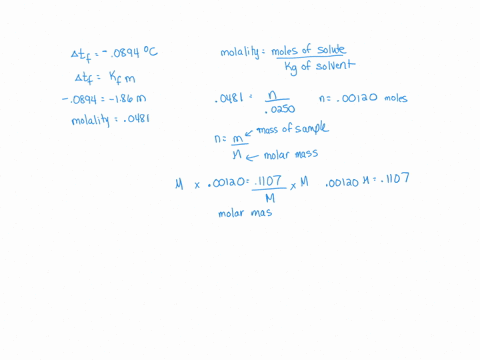 Δtf = -.0894 °C
Δtf = Kf m
-.0894 = -1.86 m
molality = .0481
molality = moles of solute / Kg of solvent
.0481 = n / .0250 n = .00120 moles
n = m / M
mass of sample
molar mass
M x .00120 = .1107 / M x M .00120 M = .1107
molar mas